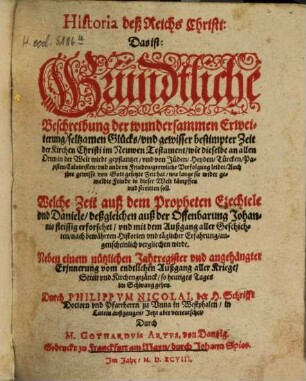 H. eccl. 518 6 4
Historia deß Reichs Christi:
Das ist:
Gründtliche
Beschreibung der wundersammen Erwei-
terung/ seltzamen Glücks/ vnd gewisser bestimpter Zeit
der Kirchen Christi im Neuwen Testament/ wie dieselbe an allen
Orten in der Welt wirdt gepflantzet/ vnd von Jüden/ Heyden/ Türcken/ Pa-
pisten/ Caluinisten/ vnd andern Feinden grewliche Verfolgung leidet: Auch
jhre gewisse von Gott gesetzte Zeit hat/ wie lange sie wider
meldte Feinde in dieser Welt kämpffen
vnd streitten soll.
Welche Zeit auß dem Propheten Ezechiele
vnd Daniele/ deßgleichen auß der Offenbarung Johan-
nis fleissig erforschet/ vnd mit dem Außgang aller Geschich-
ten/ nach bewährten Historien vnd täglicher Erfahrung/ au-
genscheinlich verglichen wirdt.
Neben einem nützlichen Jahrregister vnd angehängter
Erinnerung vom endtlichen Außgang aller Kriege/
Streit vnd Kirchengezänck/ so heutiges Tages
im Schwang gehen.
Durch PHILIPPVM NICOLAI, der H. Schrifft
Doctorn vnd Pfarrherrn zu Vnna in Westphalen/ in
Latein außgangen: Jetzt aber verteutschet/
Durch
M. GOTHARDVM ARTVS, von Dantzig.
Gedruckt zu Franckfurt am Mayn/ durch Johann Spies.
Im Jahr/ M. D. XCVIII.